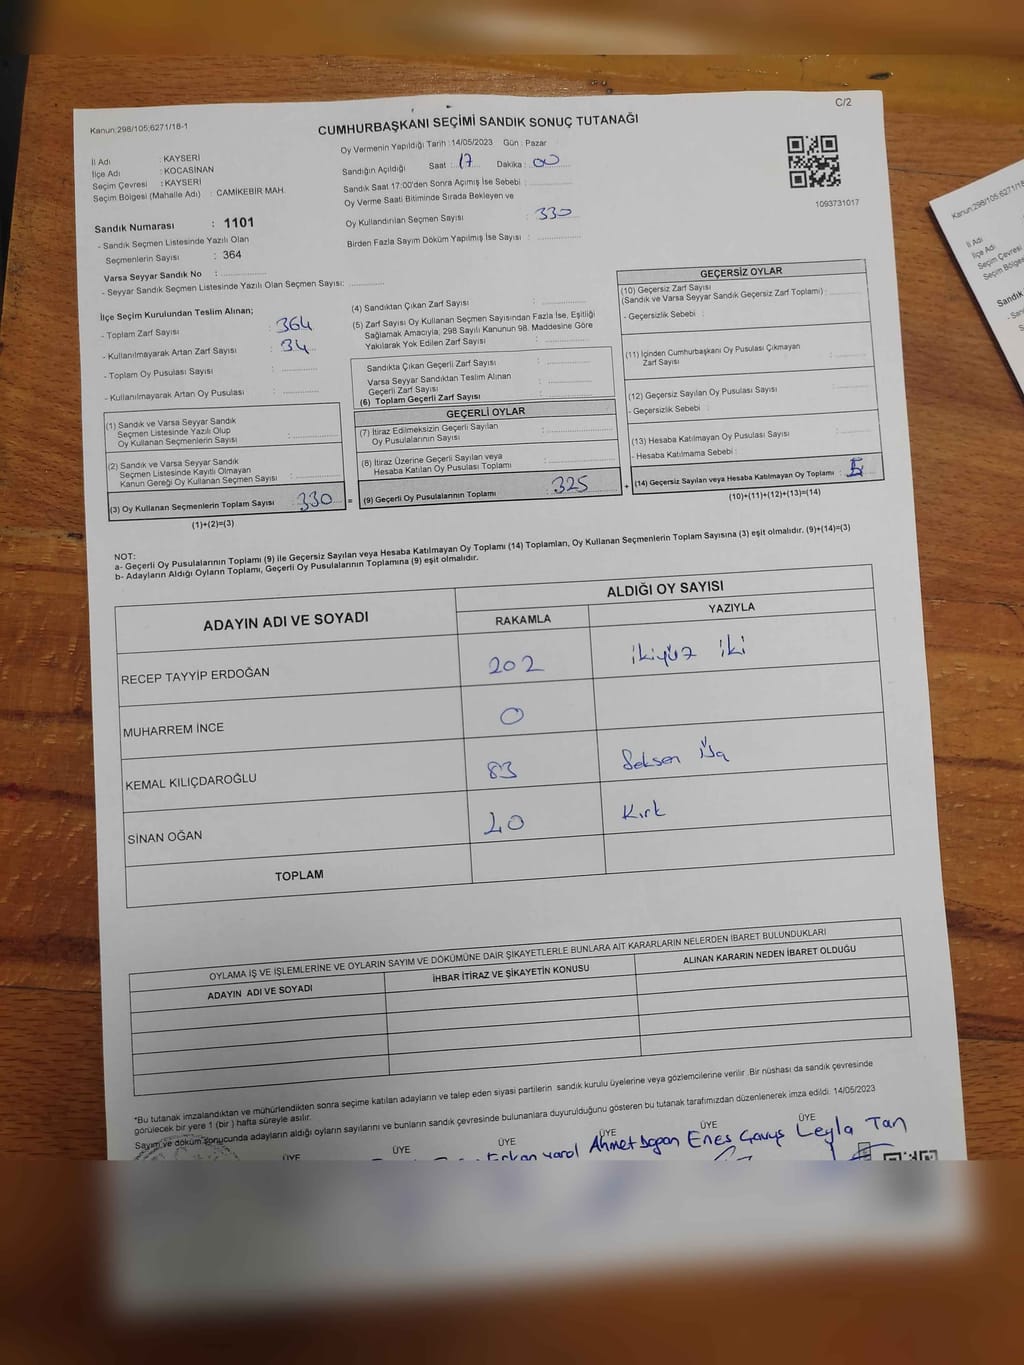 Kanun:298/105;6271/18-1
C/2
CUMHURBAŞKANI SEÇİMİ SANDIK SONUÇ TUTANAĞI
İl Adı : KAYSERİ
İlçe Adı : KOCASİNAN
Seçim Çevresi : KAYSERİ
Seçim Bölgesi (Mahalle Adı) : CAMİKEBİR MAH.
Sandık Numarası : 1101
- Sandık Seçmen Listesinde Yazılı Olan
Seçmenlerin Sayısı : 364
Varsa Seyyar Sandık No :
- Seyyar Sandık Seçmen Listesinde Yazılı Olan Seçmen Sayısı:
Oy Vermenin Yapıldığı Tarih : 14/05/2023 Gün : Pazar
Sandığın Açıldığı Saat : 17 Dakika : 00
Sandık Saat 17:00'den Sonra Açımış İse Sebebi :
Oy Verme Saati Bitiminde Sırada Bekleyen ve
Oy Kullandırılan Seçmen Sayısı : 330
Birden Fazla Sayım Döküm Yapılmış İse Sayısı :
1093731017
İlçe Seçim Kurulundan Teslim Alınan;
- Toplam Zarf Sayısı : 364
- Kullanılmayarak Artan Zarf Sayısı : 34
- Toplam Oy Pusulası Sayısı :
- Kullanılmayarak Artan Oy Pusulası :
(1) Sandık ve Varsa Seyyar Sandık
Seçmen Listesinde Yazılı Olup
Oy Kullanan Seçmenlerin Sayısı :
(2) Sandık ve Varsa Seyyar Sandık
Seçmen Listesinde Kayıtlı Olmayan
Kanun Gereği Oy Kullanan Seçmen Sayısı :
(3) Oy Kullanan Seçmenlerin Toplam Sayısı : 330 =
(1)+(2)=(3)
(4) Sandıktan Çıkan Zarf Sayısı :
(5) Zarf Sayısı Oy Kullanan Seçmen Sayısından Fazla İse, Eşitliği
Sağlamak Amacıyla, 298 Sayılı Kanunun 98. Maddesine Göre
Yakılarak Yok Edilen Zarf Sayısı :
Sandıkta Çıkan Geçerli Zarf Sayısı :
Varsa Seyyar Sandıktan Teslim Alınan
Geçerli Zarf Sayısı :
(6) Toplam Geçerli Zarf Sayısı :
GEÇERLİ OYLAR
(7) İtiraz Edilmeksizin Geçerli Sayılan
Oy Pusulalarının Sayısı :
(8) İtiraz Üzerine Geçerli Sayılan veya
Hesaba Katılan Oy Pusulası Toplamı :
(9) Geçerli Oy Pusulalarının Toplamı : 325 +
GEÇERSİZ OYLAR
(10) Geçersiz Zarf Sayısı
(Sandık ve Varsa Seyyar Sandık Geçersiz Zarf Toplamı) :
- Geçersizlik Sebebi :
(11) İçinden Cumhurbaşkanı Oy Pusulası Çıkmayan
Zarf Sayısı :
(12) Geçersiz Sayılan Oy Pusulası Sayısı :
- Geçersizlik Sebebi :
(13) Hesaba Katılmayan Oy Pusulası Sayısı :
- Hesaba Katılmama Sebebi :
(14) Geçersiz Sayılan veya Hesaba Katılmayan Oy Toplamı : 5
(10)+(11)+(12)+(13)=(14)
NOT:
a- Geçerli Oy Pusulalarının Toplamı (9) ile Geçersiz Sayılan veya Hesaba Katılmayan Oy Toplamı (14) Toplamları, Oy Kullanan Seçmenlerin Toplam Sayısına (3) eşit olmalıdır. (9)+(14)=(3)
b- Adayların Aldığı Oyların Toplamı, Geçerli Oy Pusulalarının Toplamına (9) eşit olmalıdır.
ADAYIN ADI VE SOYADI
ALDIĞI OY SAYISI
RAKAMLA YAZIYLA
RECEP TAYYİP ERDOĞAN 202 ikiyüz iki
MUHARREM İNCE 0
KEMAL KILIÇDAROĞLU 83 Seksen üç
SİNAN OĞAN 40 Kırk
TOPLAM
OYLAMA İŞ VE İŞLEMLERİNE VE OYLARIN SAYIM VE DÖKÜMÜNE DAİR ŞİKAYETLERLE BUNLARA AİT KARARLARIN NELERDEN İBARET BULUNDUKLARI
ADAYIN ADI VE SOYADI İHBAR İTİRAZ VE ŞİKAYETİN KONUSU ALINAN KARARIN NEDEN İBARET OLDUĞU
*Bu tutanak imzalandıktan ve mühürlendikten sonra seçime katılan adayların ve talep eden siyasi partilerin sandık kurulu üyelerine veya gözlemcilerine verilir .Bir nüshası da sandık çevresinde
görülecek bir yere 1 (bir ) hafta süreyle asılır.
Sayım ve döküm sonucunda adayların aldığı oyların sayılarını ve bunların sandık çevresinde bulunanlara duyurulduğunu gösteren bu tutanak tarafımızdan düzenlenerek imza edildi. 14/05/2023
ÜYE ÜYE ÜYE ÜYE ÜYE ÜYE
Erkan Ahmet Dogan Enes Leyla Tan
Kanun:298/105;6271/18
İl Adı
İlçe Adı
Seçim Çevresi
Seçim Bölges
Sandık